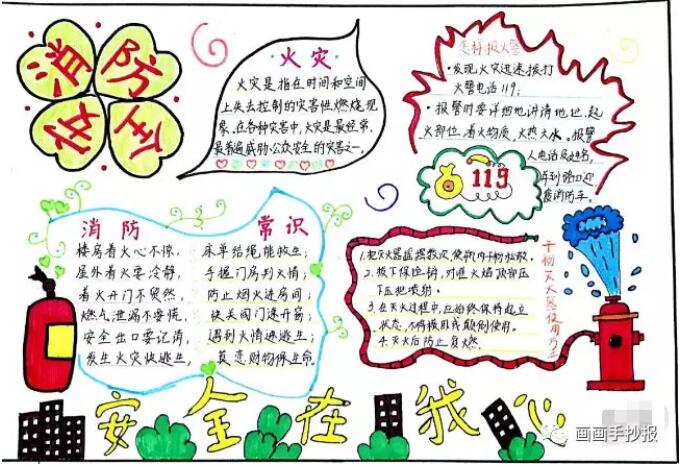 消防
安全
火灾
火灾是指在时间和空间
上失去控制的灾害性燃烧现
象。在各种灾害中,火灾是最经常、
最普遍威胁公众安全的灾害之一。
怎样报火警
·发现火灾迅速拨打
火警电话119;
·报警时要详细地讲清地址、起
火部位、着火物质、火势大小、报警
人电话及姓名,
119
消防 常识
楼房着火心不惊,
屋外着火要冷静,
着火开门不贸然,
燃气泄漏不要慌,
安全出口要记清,
发生火灾快逃生,
床单结绳能救生;
手摸门房判火情;
防止烟火进房间;
快关阀门速开窗;
遇到火情迷逃生;
莫恋财物保生命
干粉灭火器使用方法
2.拔下保险销,对准火焰根部压下
压把喷射。
3.在灭火过程中,应始终保持起立
状态,不得横卧或颠倒使用。
4.灭火后防止复燃
安全在我心
画画手抄报